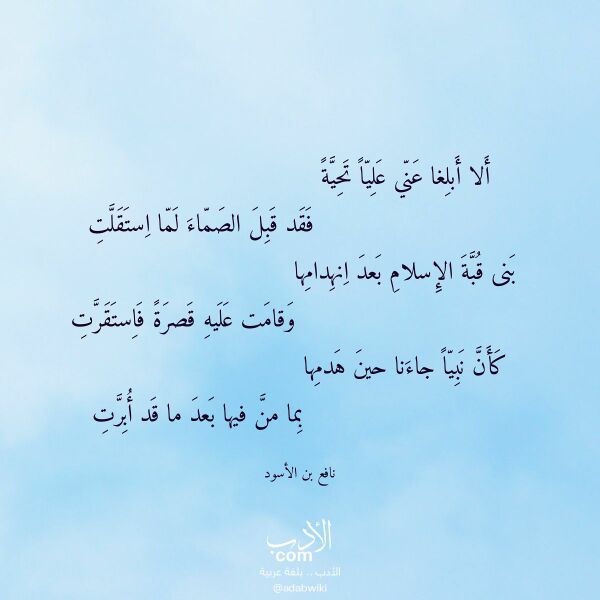 أَلا أَبلِغا عَنّي عَلِيّاً تَحِيَّةً
فَقَد قَبِلَ الصَمّاءَ لَمّا اِستَقَلَّتِ
بَنى قُبَّةَ الإِسلامِ بَعدَ اِنهِدامِها
وَقامَت عَلَيهِ قَصرَةً فَاِستَقَرَّتِ
كَأَنَّ نَبِيّاً جاءَنا حينَ هَدمِها
بِما منَّ فيها بَعدَ ما قَد أُبِرَّتِ
نافع بن الأسود
الأدب
.com
الأدب .. بلغة عربية
@adabwiki